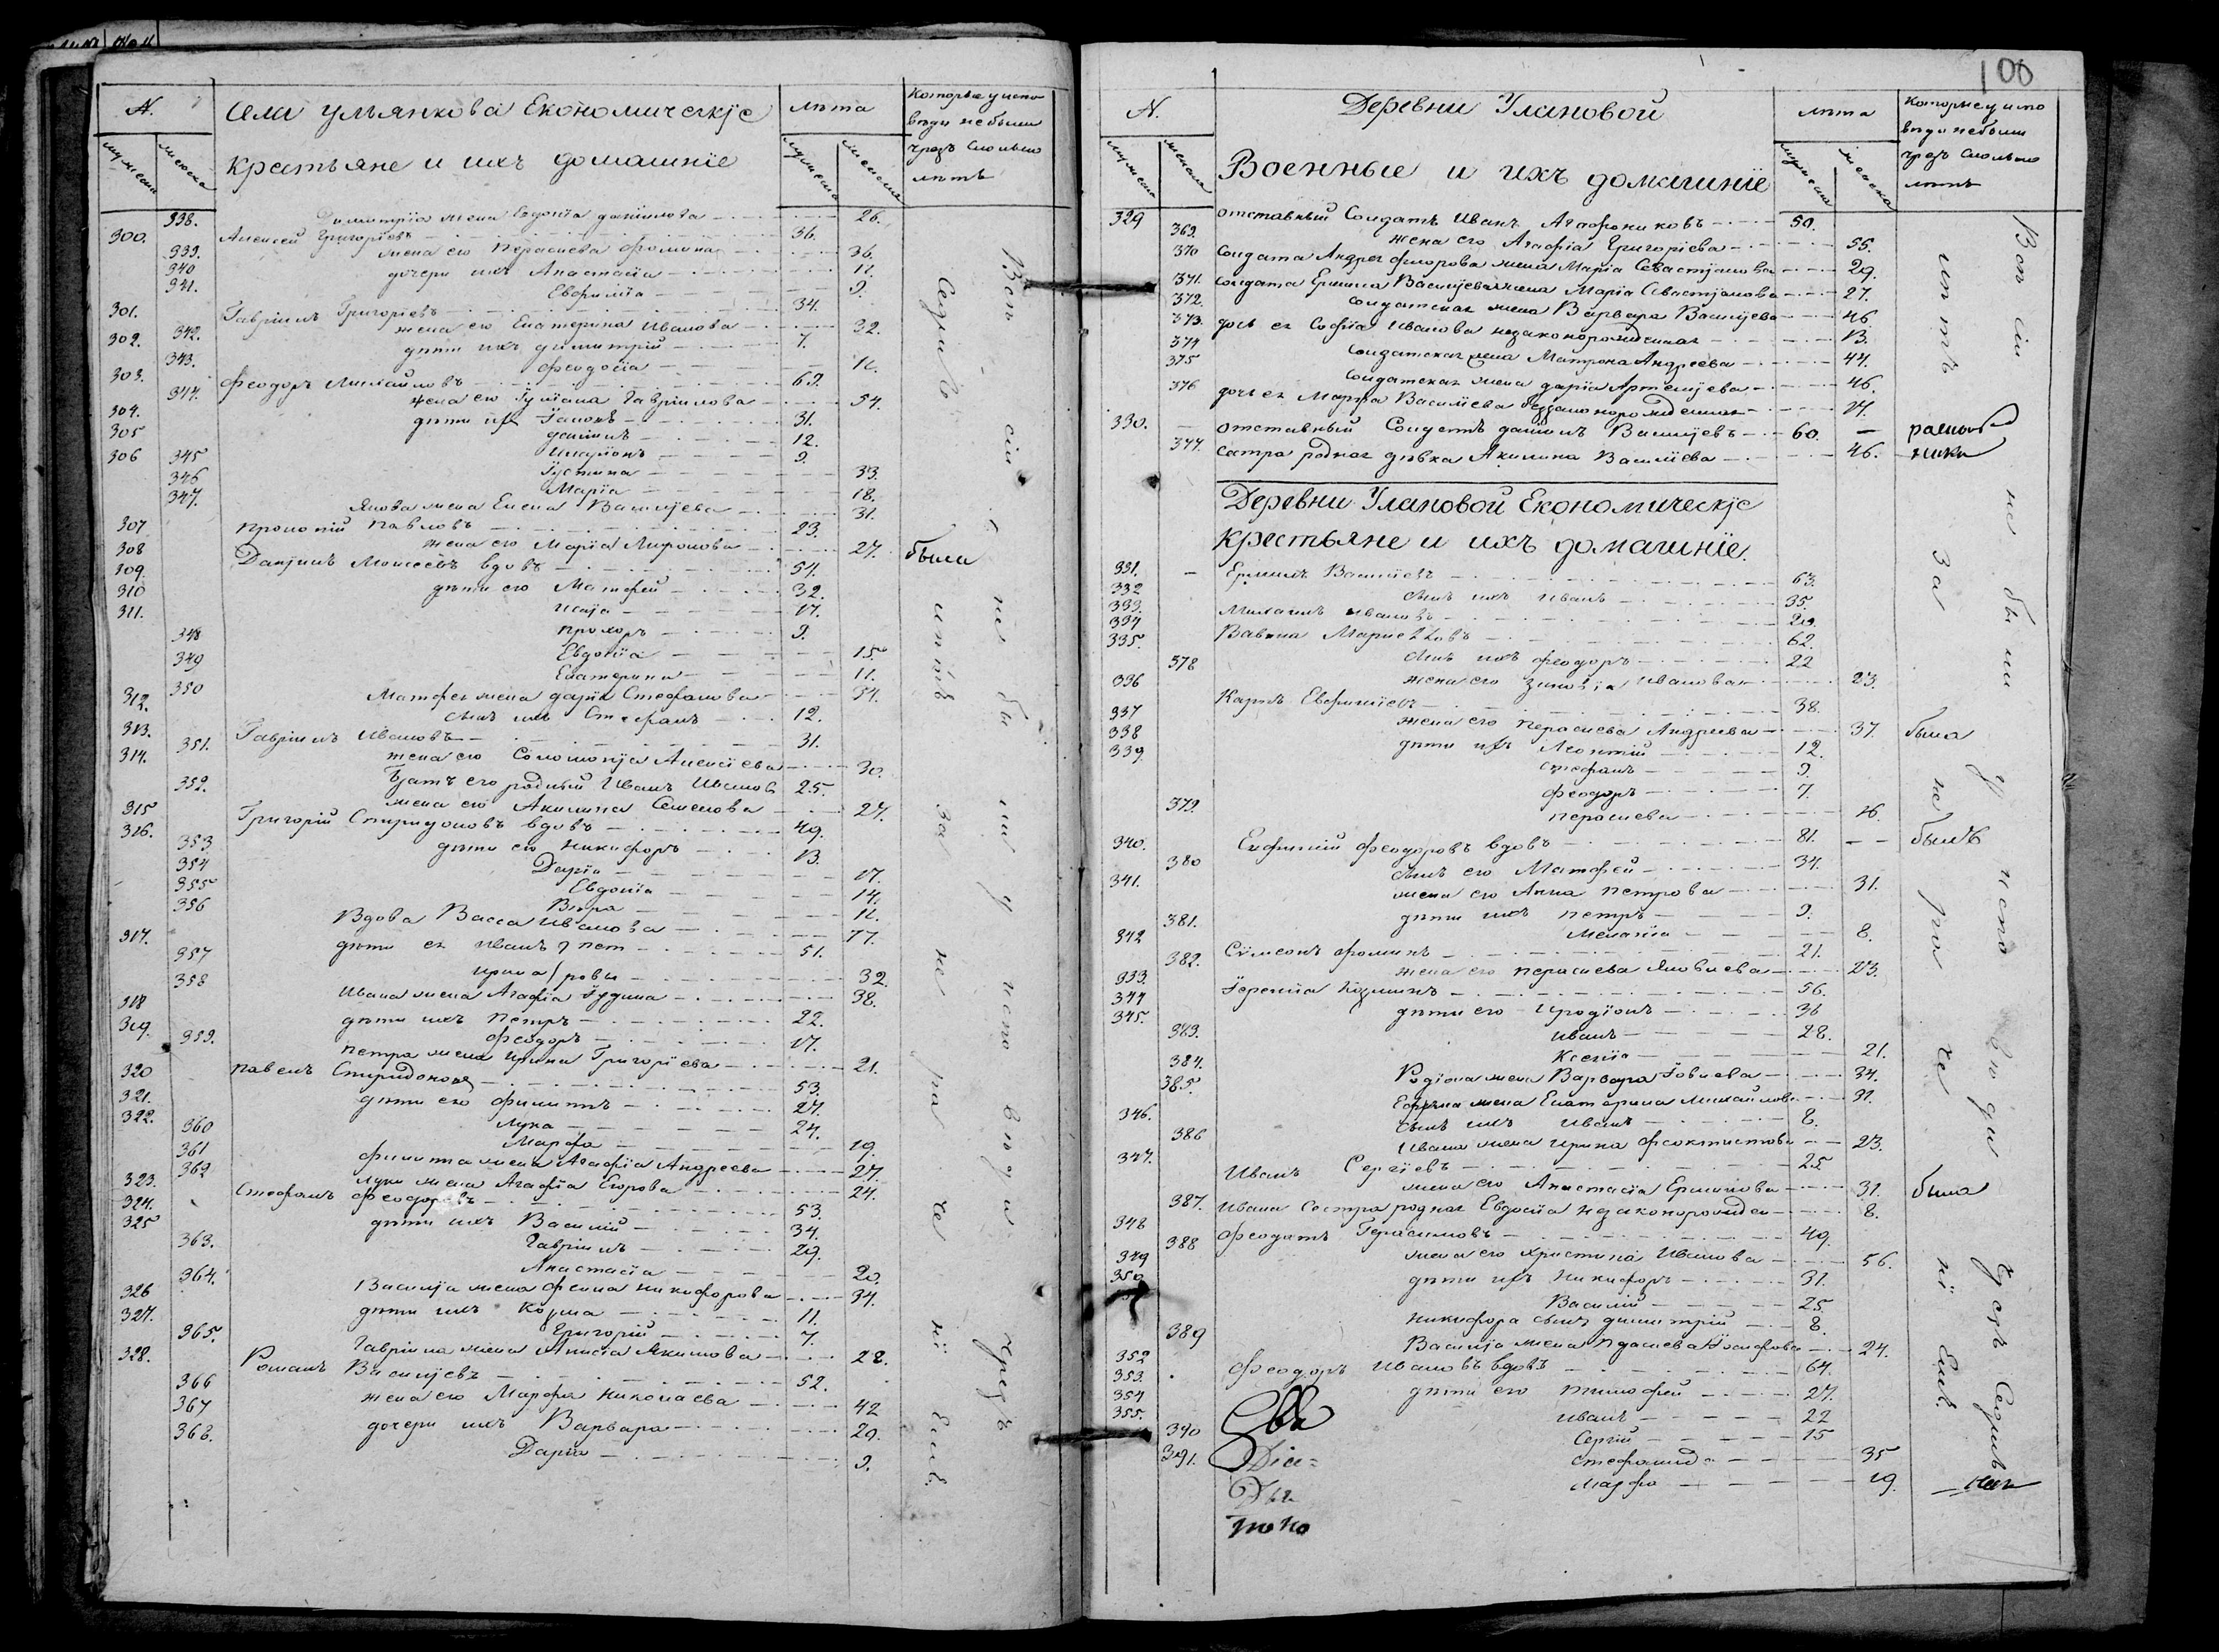 N.
Села ульянкова Економическіе
крестьяне и ихъ домашніе
лѣта
Которые у испо
вѣди не были
чрезъ сколько
лѣтъ
мужеска
женска
мужеска
женска
338. Димитрія жена Евдокіа даніилова 26.
300. Алексей Григоріевъ 36.
339. жена его Параскева фомина 36.
340 дочери ихъ Анастасіа 11.
341. Евфиміа 9.
301. Гавріилъ Григоріевъ 34.
342. жена его Екатерина Иванова 32.
302. дѣти ихъ димитрій 7.
343. феодосіа 11.
303. Феодоръ Михайловъ 69.
344. жена его Іуліана Гавріилова 54.
304. дѣти ихъ Іаковъ 31.
305 даніилъ 12.
306 Иларіонъ 9.
345 Іустина 33.
346 Маріа 18.
347. Якова жена Елена Василіева 31.
307 Прокопій Павловъ 23.
жена его Маріа Миронова 27. была
308 Даніилъ Моисеевъ вдовъ 51.
309. дѣти его Матфей 32.
310 Исаія 17.
311. Прохоръ 9.
348 Евдокіа 15.
349 Екатерина 11.
350 Матфея жена даріа Стефанова 34.
312. сынъ ихъ Стефанъ 12.
313. Гавріилъ Ивановъ 31.
351. жена его Соломонія Алексіева 30.
314. Братъ его родный Иванъ Ивановъ 25.
352. жена его Акилина Семенова 27.
315 Григорій Спиридоновъ вдовъ 49.
316. дѣти его Никифоръ 13.
353 Даріа 17.
354 Евдокіа 14.
355 Вѣра 11.
356 Вдова Васса Иванова 77.
317. дѣти ея Иванъ пет 51.
357 Ирина ровы 32.
358 Ивана жена Агафіа Іудина 38.
318 дѣти ихъ Петръ 22.
319. Феодоръ 17.
359. Петра жена Ирина Григоріева 21.
320 Павелъ Спиридоновъ 53.
321. дѣти его Филиппъ 27.
322. Лука 24.
360 Марфа 19.
361 Филиппа жена Агафіа Андреева 27.
362 Луки жена Агафіа Егорова 24.
323. Стефанъ Феодоровъ 53.
324. дѣти ихъ Василій 34.
325 Гавріилъ 29.
363. Анастасіа 20.
364. Василія жена Фекла Никифорова 34.
326 дѣти ихъ Козма 11.
327. Григорій 7.
365. Гавріила жена Анисіа Якимова 28.
328. Романъ Василіевъ 52.
366 жена его Марфа Николаева 42
367 дочери ихъ Варвара 20.
368. Даріа 9.
Вси сіи не были у исповѣди чрезъ
Седмь лѣтъ за не раченіемъ.
100
N.
Деревни Улановой
Военные и ихъ домашніе
лѣта
Которые у испо
вѣди не были
чрезъ сколько
лѣтъ
мужеска
женска
мужеска
женска
329 отставный Солдатъ Иванъ Агафониковъ 50.
369. жена его Агафіа Григоріева 55.
370 Солдата Андрея Флорова жена Маріа Севастіанова 29.
371. Солдата Ермила Василіева жена Маріа Севастіанова 27.
372. Солдатская жена Варвара Василіева 46
373. дочь ея Софіа Иванова незаконорожденная 13.
374 Солдатская жена Матрона Андреева 44.
375 Солдатская жена даріа Артеміева 46.
376 дочь ея Марфа Василіева незаконорожденная 17.
330. отставный Солдатъ даніилъ Василіевъ 60. — раскол
377. Сестра родная дѣвка Акилина Василіева 46. ники
Деревни Улановой Економическіе
крестьяне и ихъ домашніе.
331. Ермилъ Василіевъ 63.
332 сынъ ихъ Иванъ 35.
333. Михаилъ Ивановъ 29.
334 Вавила 62.
335. сынъ ихъ Феодоръ 22
378 жена его Зиновіа Иванова 23.
336 Карпъ Евфиміевъ 38.
жена его Параскева Андреева 37. была
337 дѣти ихъ Леонтій 12.
338 Стефанъ 9.
339 Феодоръ 7.
379. Параскева 16.
340. Евфимій Феодоровъ вдовъ 81. — — былъ
сынъ его Матфей 34.
380 жена его Анна Петрова 31.
341. дѣти ихъ Петръ 9.
381. Меланіа 8.
342 Сумеонъ Фоминъ 21.
382. жена его Параскева Яковлева 23.
Іеремія Козминъ 56.
344 дѣти его Иродіонъ 36
345. Иванъ 28.
383. Ксеніа 21.
384. Родіона жена Варвара Іовлева 34.
385. Екатерина Михайлова 31.
346. сынъ ихъ Иванъ 8.
386 Ивана жена Ирина Феоктистова 23.
347. Иванъ Сергіевъ 25.
жена его Анастасіа Ермилова 31. была
387. Ивана Сестра родная Евдокіа незаконорожден 8.
348 Феодотъ Герасимовъ 49.
388 жена его Христина Иванова 56.
349 дѣти ихъ Никифоръ 31.
350 Василій 25.
Никифора сынъ димитрій 8.
389 Василія жена 24.
352 Феодоръ Ивановъ вдовъ 64.
353. дѣти его Тимофей 27.
354 Иванъ 22
355. Сергій 15
390 Стефанида 35
391. Марфа 19.
Діа=
Вси сіи не были у исповѣди чрезъ Седмь
лѣтъ за не раченіемъ.